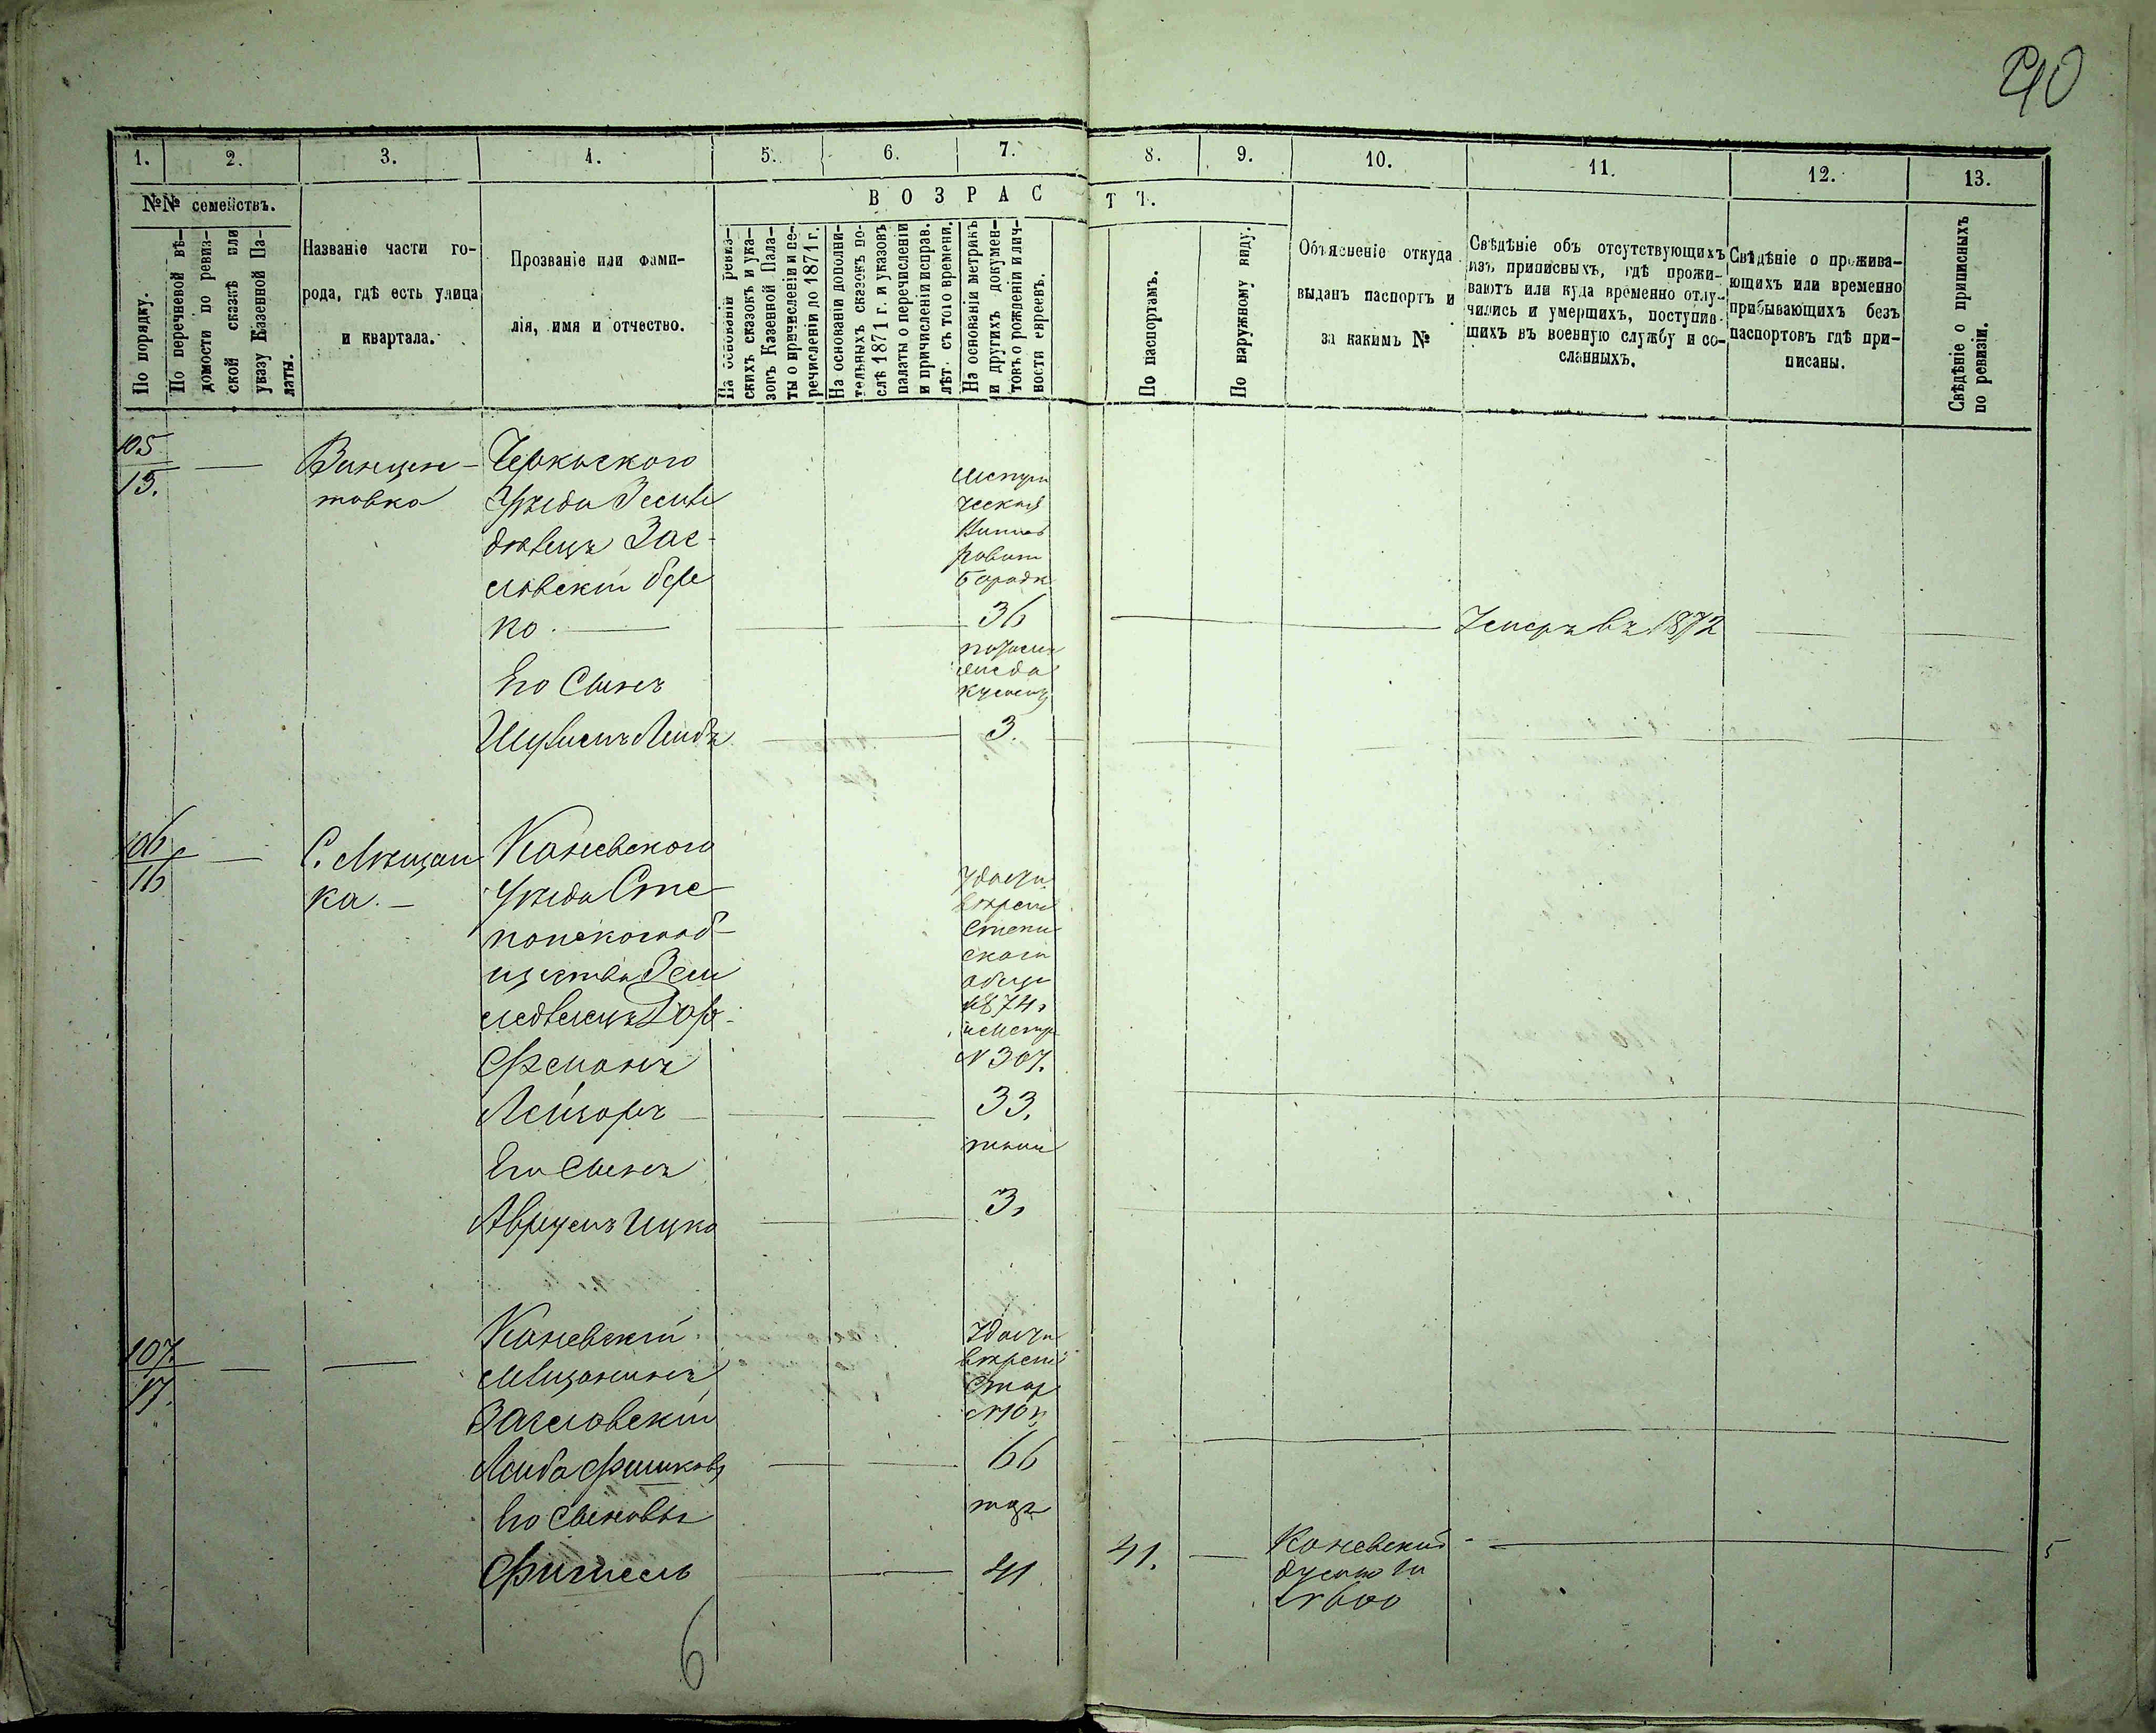 40
1. 2. 3. 4. 5. 6. 7. 8. 9. 10. 11. 12. 13.
№№ семействъ.
В О З Р А С Т Ъ.
По порядку.
По перечневой вѣ-
домости по ревиз-
ской сказкѣ или
указу Казенной Па-
латы.
Названіе части го-
рода, гдѣ есть улица
и квартала.
Прозваніе или фами-
лія, имя и отчество.
На основаніи ревиз-
скихъ сказокъ и ука-
зовъ Казенной Пала-
ты о причисленіи и пе-
речисленіи до 1871 г.
На основаніи дополни-
тельныхъ сказокъ по-
слѣ 1871 г. и указовъ
палаты о перечисленіи
и причисленіи исправ.
лѣт. съ того времени.
На основаніи метрикъ
и другихъ докумен-
товъ о рожденіи и лич-
ности евреевъ.
По паспортамъ.
По наружному виду.
Объясненіе откуда
выданъ паспортъ и
за какимъ №
Свѣдѣніе объ отсутствующихъ
изъ приписныхъ, гдѣ прожи-
ваютъ или куда временно отлу-
чились и умершихъ, поступив-
шихъ въ военную службу и со-
сланныхъ.
Свѣдѣніе о прожива-
ющихъ или временно
прибывающихъ безъ
паспортовъ гдѣ при-
писаны.
Свѣдѣніе о приписныхъ
по ревизіи.
105
15.
Винцен-
товка
Черкаского
Уѣзда Земле
дѣлецъ Зас-
лавскій Бер
ко.
36
Умеръ въ 1872
Его Сынъ
Шулимъ Лейбъ
3.
106
16
С. Мѣщан
ка.
Каневского
Уѣзда Сте
панскаго об-
щества Зем
ледѣлецъ Дор-
фманъ
Лейзоръ
1874
№ 307.
33.
Его Сынъ
Аврумъ Ицко
3.
107.
17.
Каневскій
Мѣщанинъ
Заславскій
Лейба Фишковъ
66
Его Сыновья
Фишель
41
41.
Каневской
думою за
№ 600
6
5